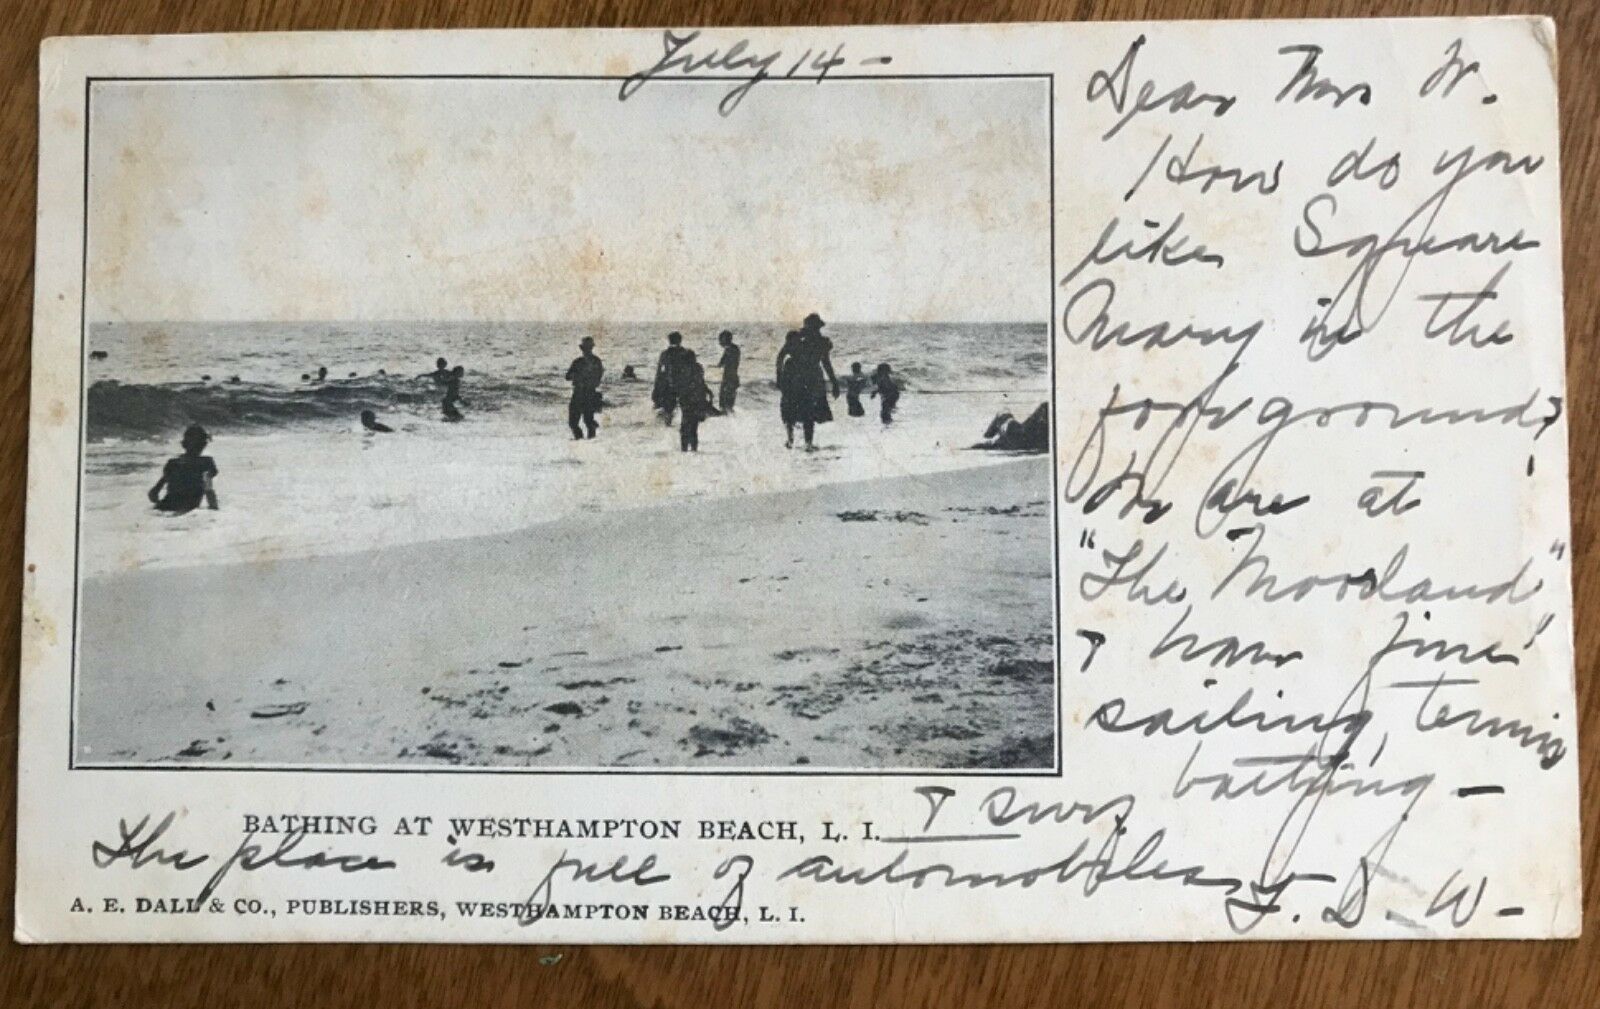 July 14 -
Dear Mrs W.
How do you
like Square
Mary in the
foreground?
We are at
"The Moorland"
& have fine
sailing, tennis
bathing -
&
BATHING AT WESTHAMPTON BEACH, L. I.
The place is full of automobiles
F. D. W -
A. E. DALL & CO., PUBLISHERS, WESTHAMPTON BEACH, L. I.